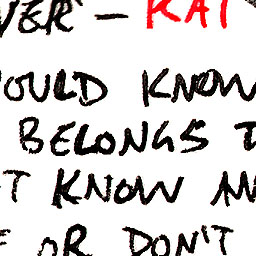 VER — KAT
OULD KNOW
BELONGS T
T KNOW AN
E OR DON'T